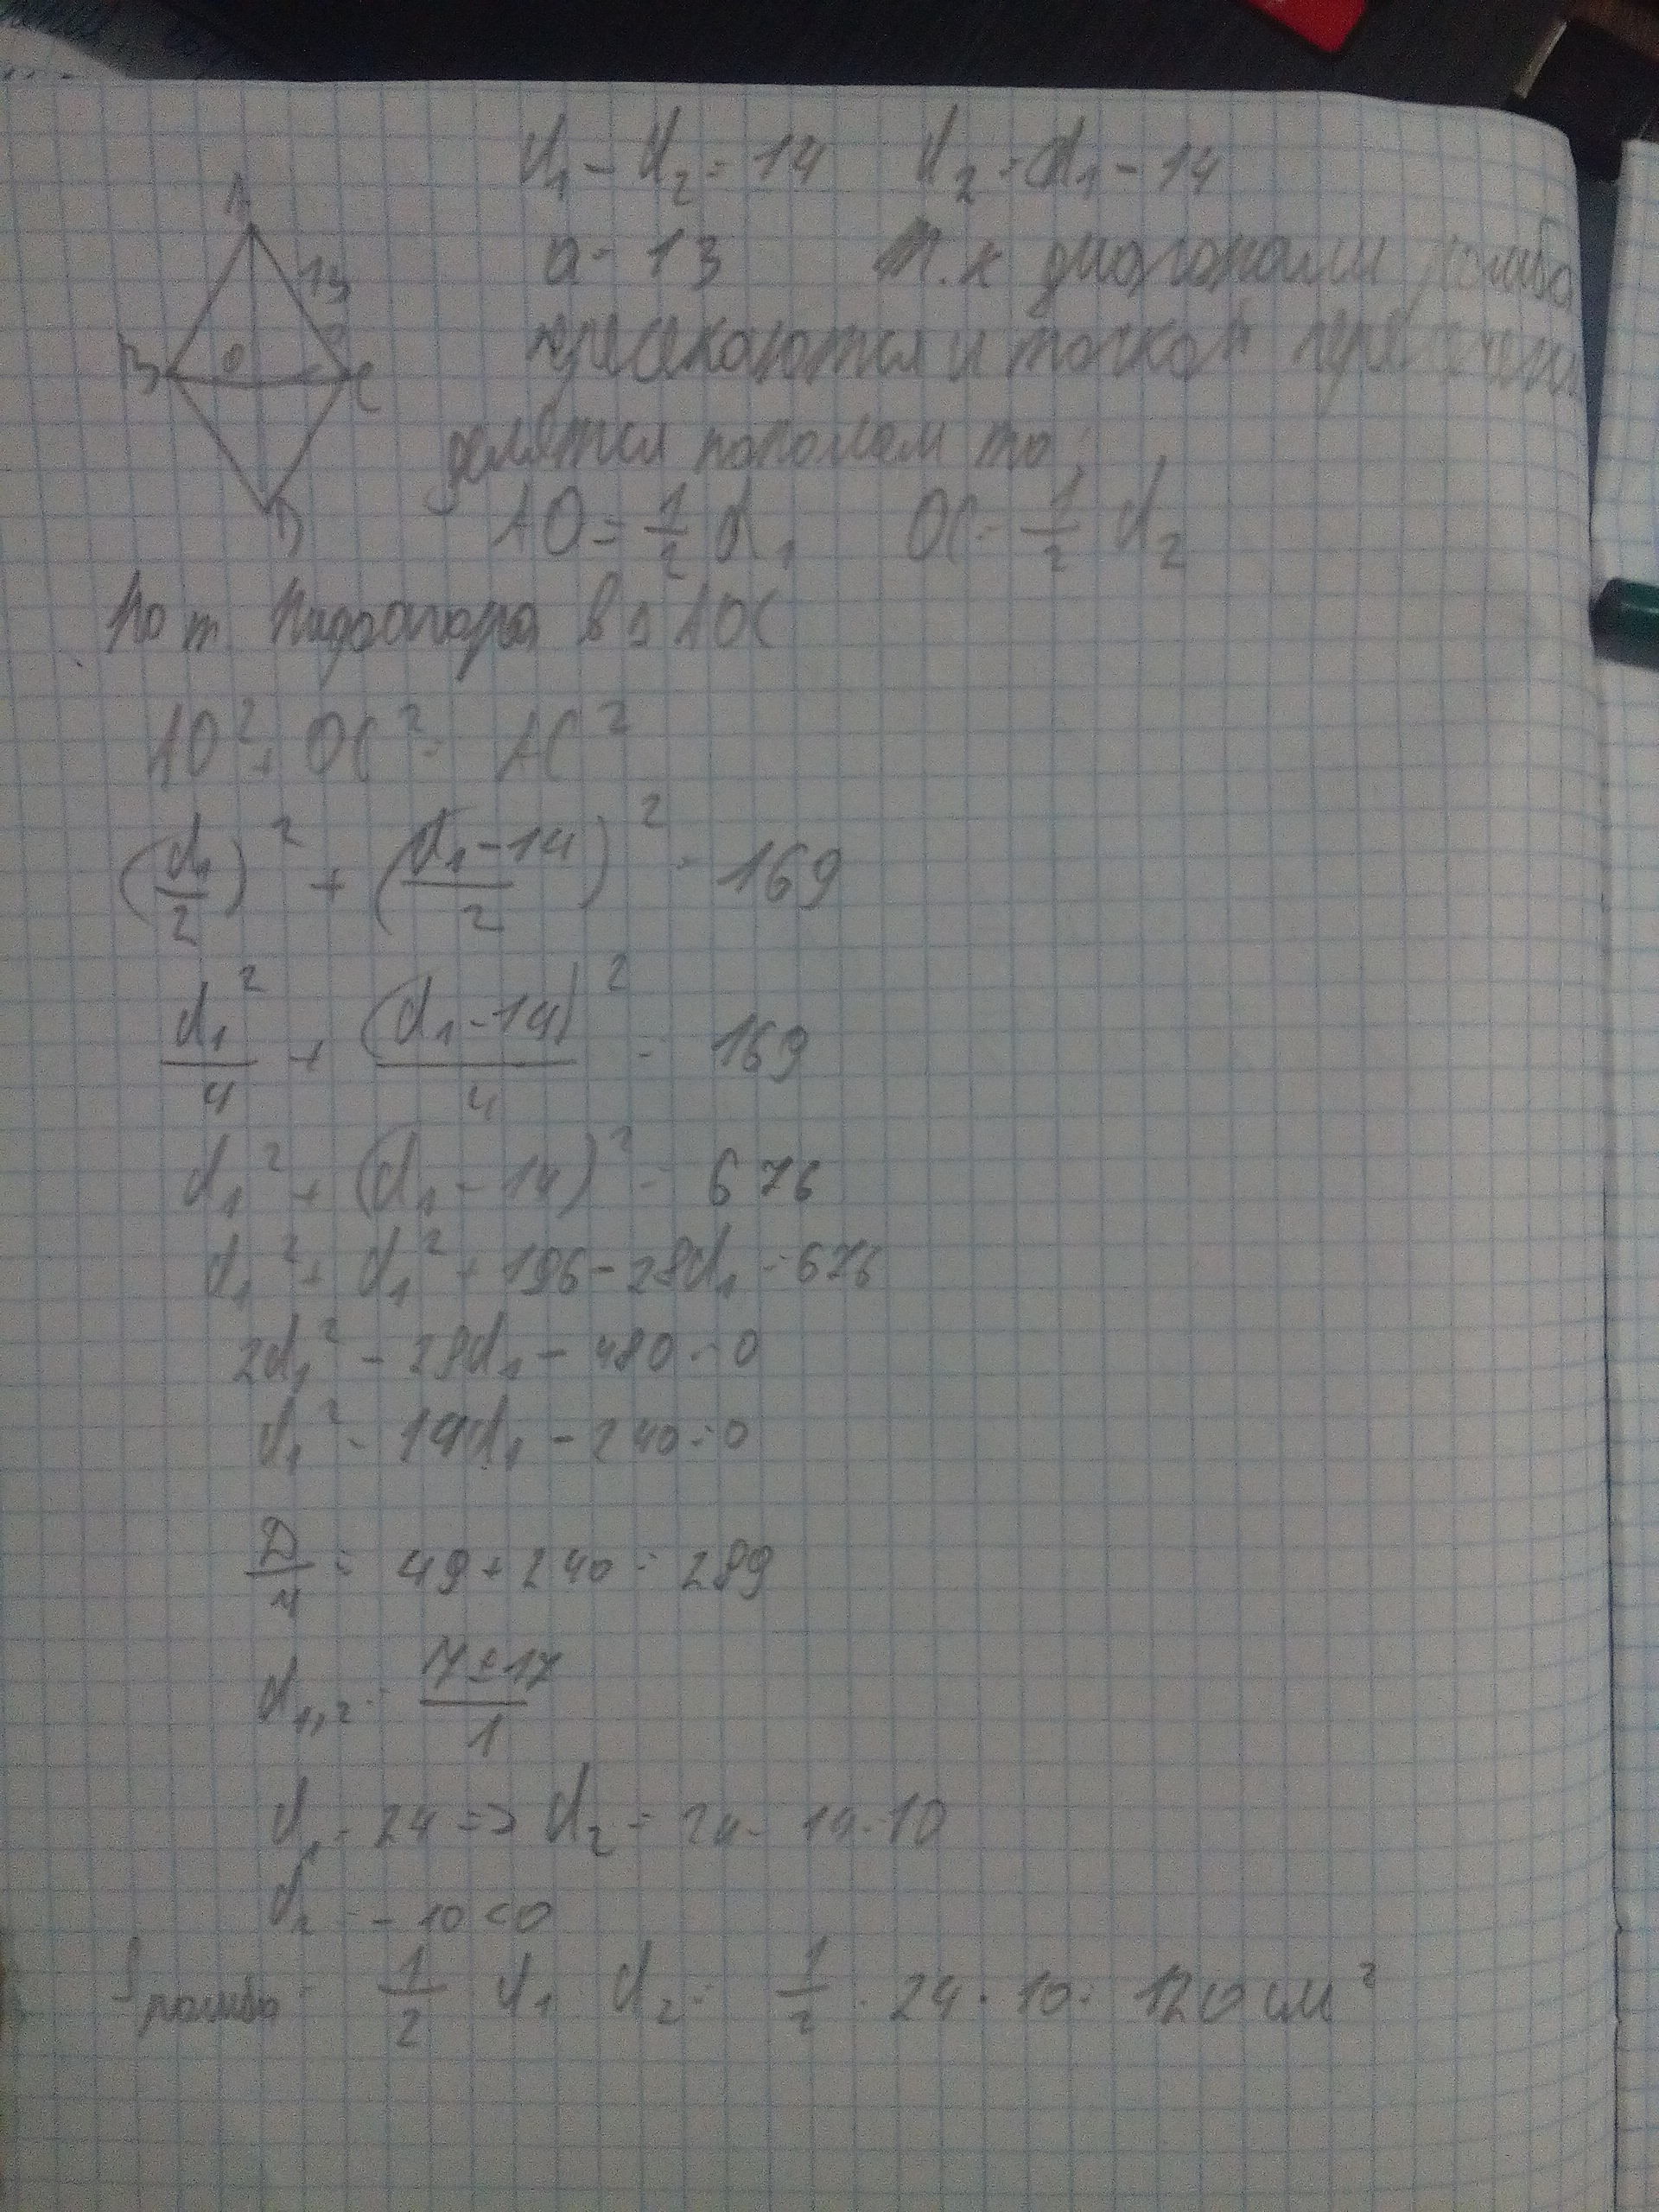 d₁ - d₂ = 14 d₂ = d₁ - 14
A
a = 13 т.к диагонали ромба
13
пресекаются и точкой
B O C
делятся пополам то;
D
AO = 1/2 d₁ OC = 1/2 d₂
По т. Пифагора в △ AOC
AO² + OC² = AC²
(d₁/2)² + (d₁-14/2)² = 169
d₁²/4 + (d₁-14)²/4 = 169
d₁² + (d₁ - 14)² = 676
d₁² + d₁² + 196 - 28d₁ = 676
2d₁² - 28d₁ - 480 = 0
d₁² - 14d₁ - 240 = 0
D/4 = 49 + 240 = 289
d₁,₂ = 7 ± 17/1
d₁ = 24 => d₂ = 24 - 14 = 10
d₂ = - 10 < 0
S ромба = 1/2 d₁ d₂ = 1/2 · 24 · 10 = 120 см²